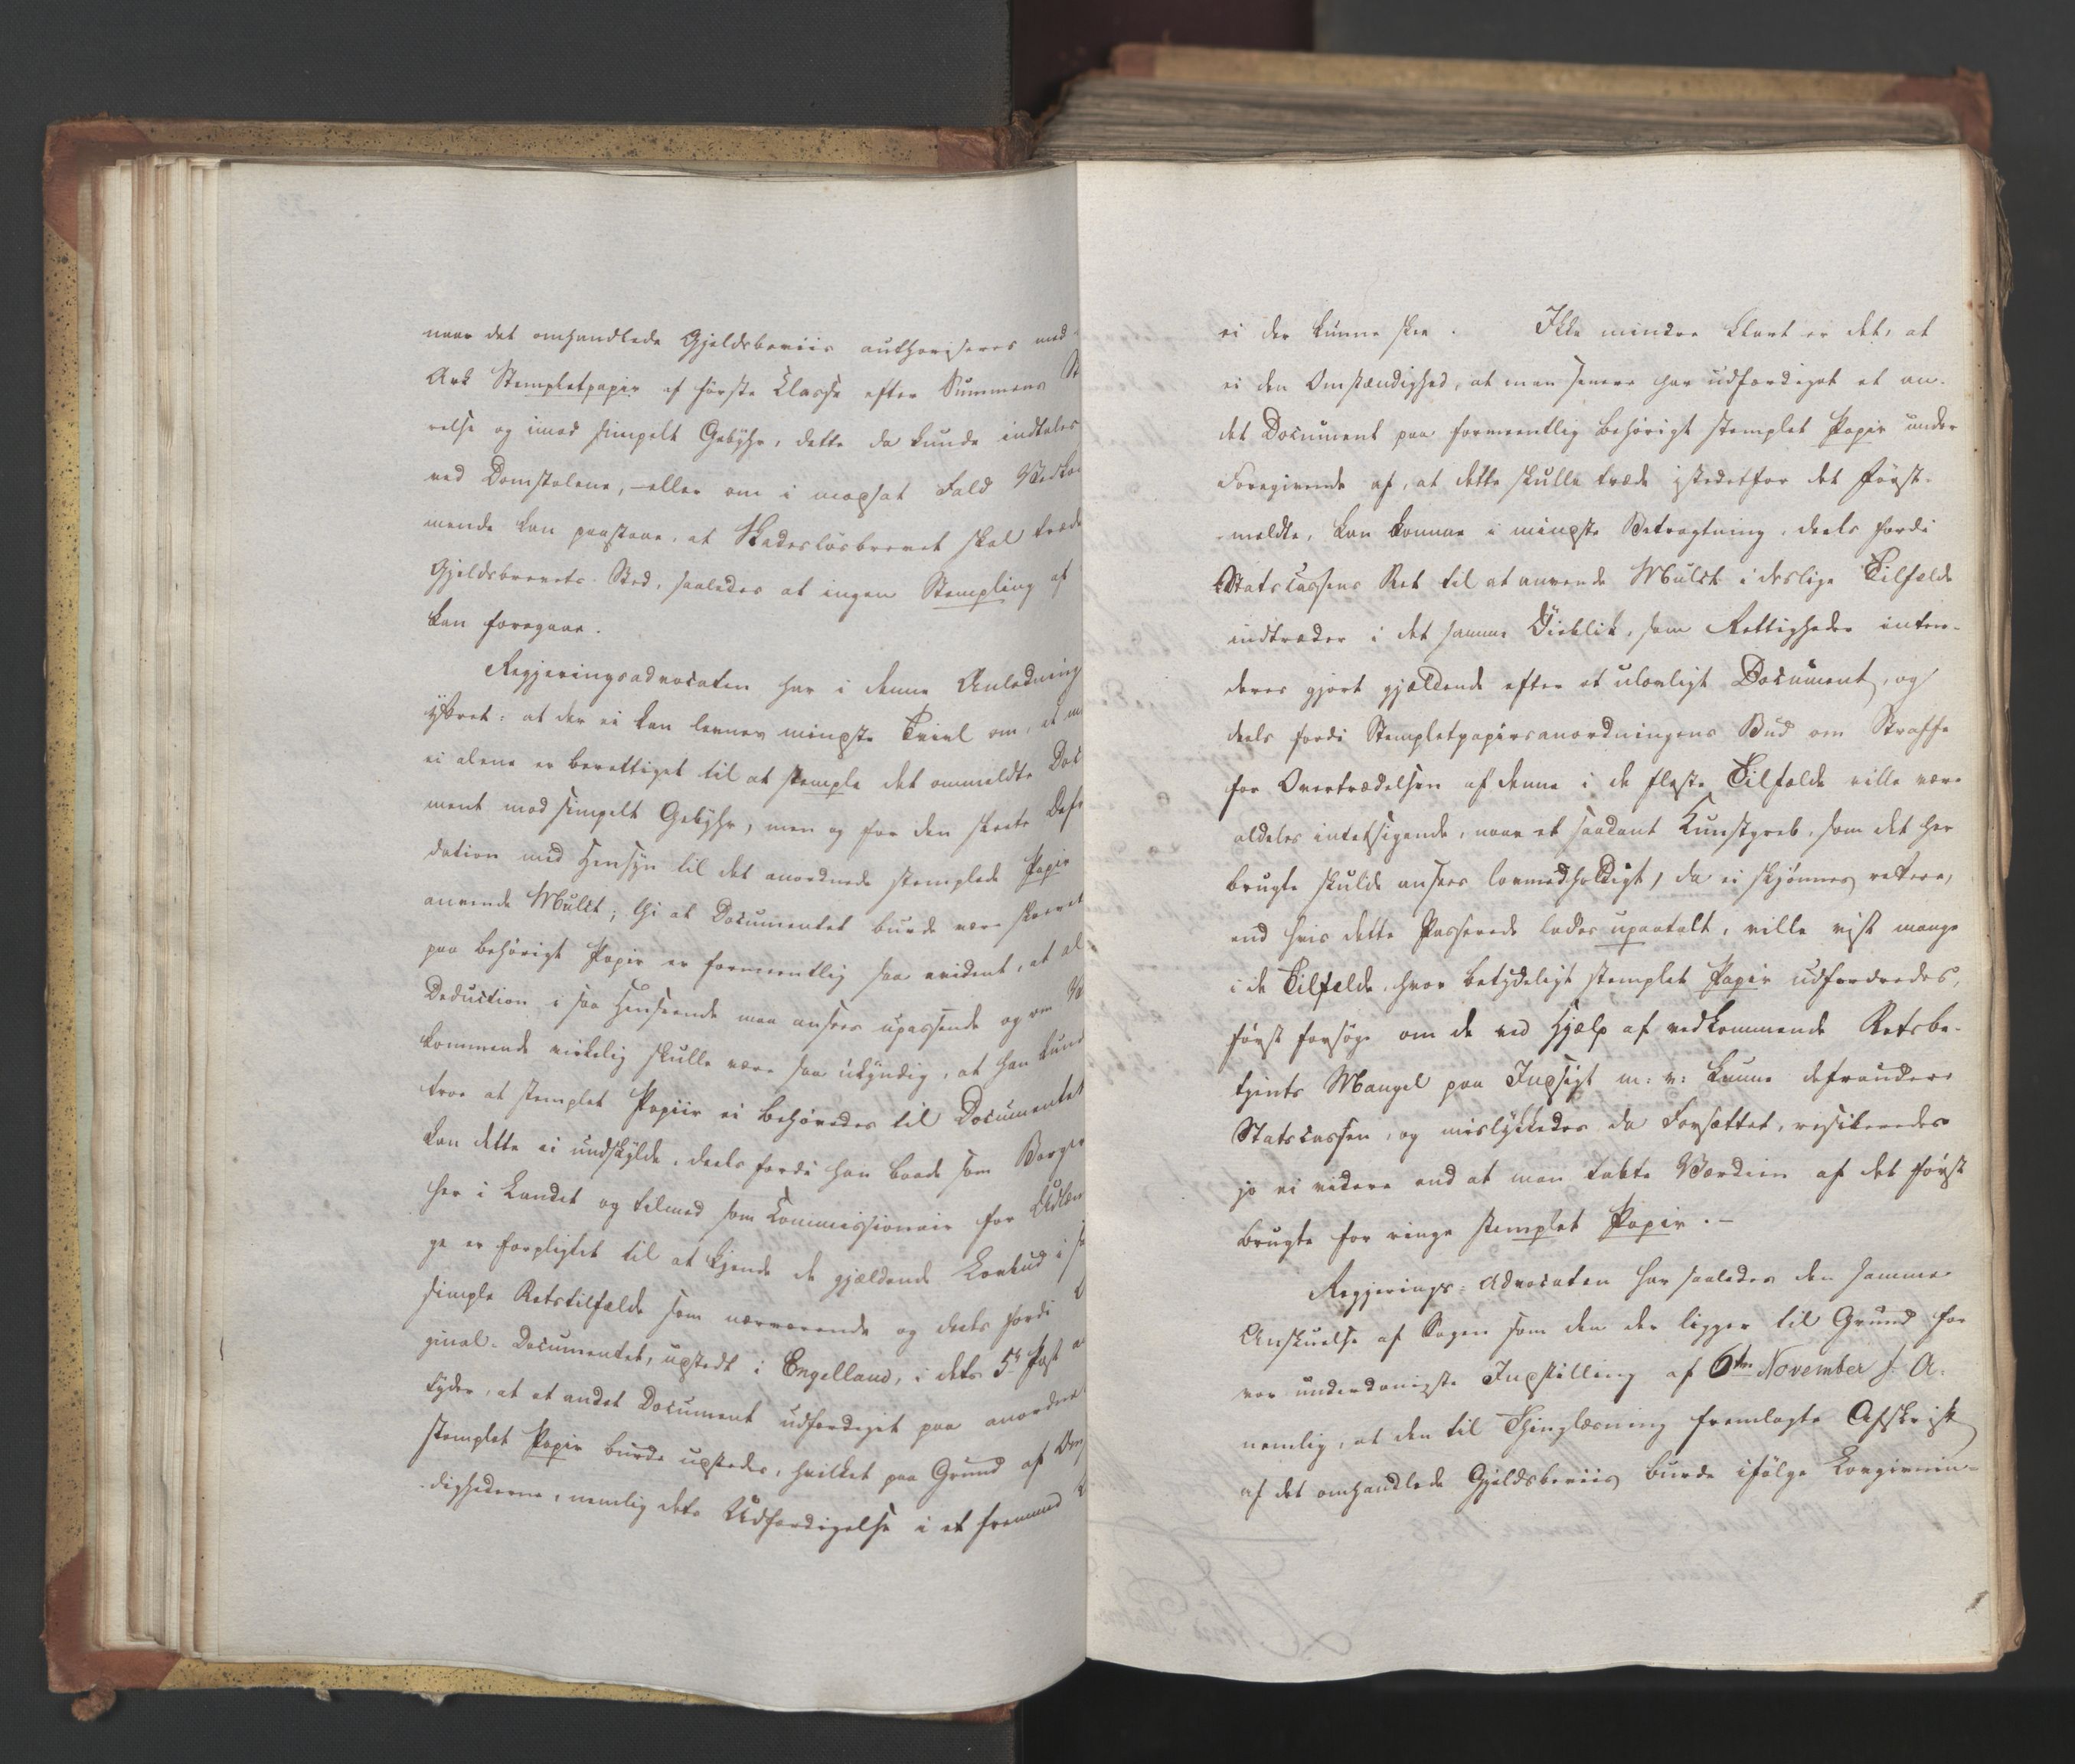 naar det omhandlede Gjeldsbeviis authoriseres med
Ark Stempletpapir af første Classe efter Summens St
relse og imod simpelt Gebyhr, dette da kunde indtales
ved Domstolene, eller om i modsat Fald Vedkom
mende kan paastaae, at Skadesløsbrevet skal træde
Gjeldsbrevets Sted, saaledes at ingen Stempling af
kan foregaae.
Regjeringsadvocaten har i denne Anledning
yttret: at der ei kan levnes mindste Tvivl om, at m
ei alene er berettiget til at stemple det ommeldte Doc
ment mod simpelt Gebyhr, men og for den skeete Defr
dation med Hensyn til det anordnede stemplede Papir
anvende Mulct; thi at Documentet burde være skrevet
paa behørigt Papir er formeentlig saa evident, at al
Deduction i saa Henseende maa ansees upassende og om V
kommende virkelig skulle være saa ukyndig, at han kund
troe at stemplet Papiir ei behøvedes til Documentet
kan dette ei undskylde, deels fordi han baade som Borger
her i Landet og tilmed som Commissionair for Udlæn
ge er forpligtet til at kjende de gjældende Lovbud i s
simple Retstilfælde som nærværende og deels fordi
ginal-Documentet, udstedt i Engelland, i dets 5t Post
tyder, at et andet Document udfærdiget paa anordnet
stemplet Papir burde udstedes, hvilket paa Grund af Om
dighederne, nemlig dets Udfærdigelse i et fremmed
ei der kunne skee. Ikke mindre klart er det, at
ei den Omstændighed, at man senere har udfærdiget et an-
det Document paa formeentlig behørigt stemplet Papir under
Foregivende af, at dette skulle træde istedetfor det først-
meldte, kan komme i mindste Betragtning, deels fordi
Statscassens Ret til at anvende Mulct i deslige Tilfælde
indtræder i det samme Øieblik, som Rettigheder inten-
deres gjort gjældende efter et ulovligt Document, og
deels fordi Stempletpapirsanordningens Bud om Straffe
for Overtrædelsen af denne i de fleste Tilfælde ville være
aldeles intetsigende, naar et saadant Kunstgreb, som det her
brugte skulde ansees lovmedholdigt, da ei skjønnes rettere,
end hvis dette Passerede lades upaatalt, ville vist mange
i de Tilfælde, hvor betydeligt stemplet Papir udfordredes,
først forsøge om de ved Hjælp af vedkommende Retsbe-
tjents Mangel paa Indsigt m: v: kunne defraudere
Statscassen, og mislykkedes da Forsættet, risikeredes
jo ei videre end at man tabte Værdien af det først
brugte for ringe stemplet Papir. -
Regjerings-Advocaten har saaledes den samme
Anskuelse af Sagen som den der ligger til Grund for
vor underdanigste Indstilling af 6te November f: A.
nemlig, at den til Thinglæsning fremlagte Afskrift
af det omhandlede Gjeldsbeviis burde ifølge Lovgivnin-